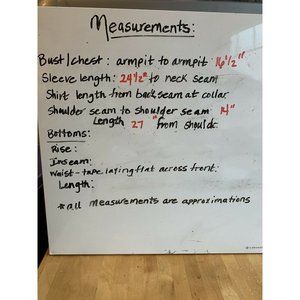 Measurements:
Bust/chest: armpit to armpit 16 1/2"
Sleeve length: 24 1/2" to neck seam
Shirt length from back seam at collar
Shoulder seam to shoulder seam 14"
Length 27" from shoulder
Bottoms:
Rise:
Inseam:
Waist - tape laying flat across front:
Length:
*all measurements are approximations